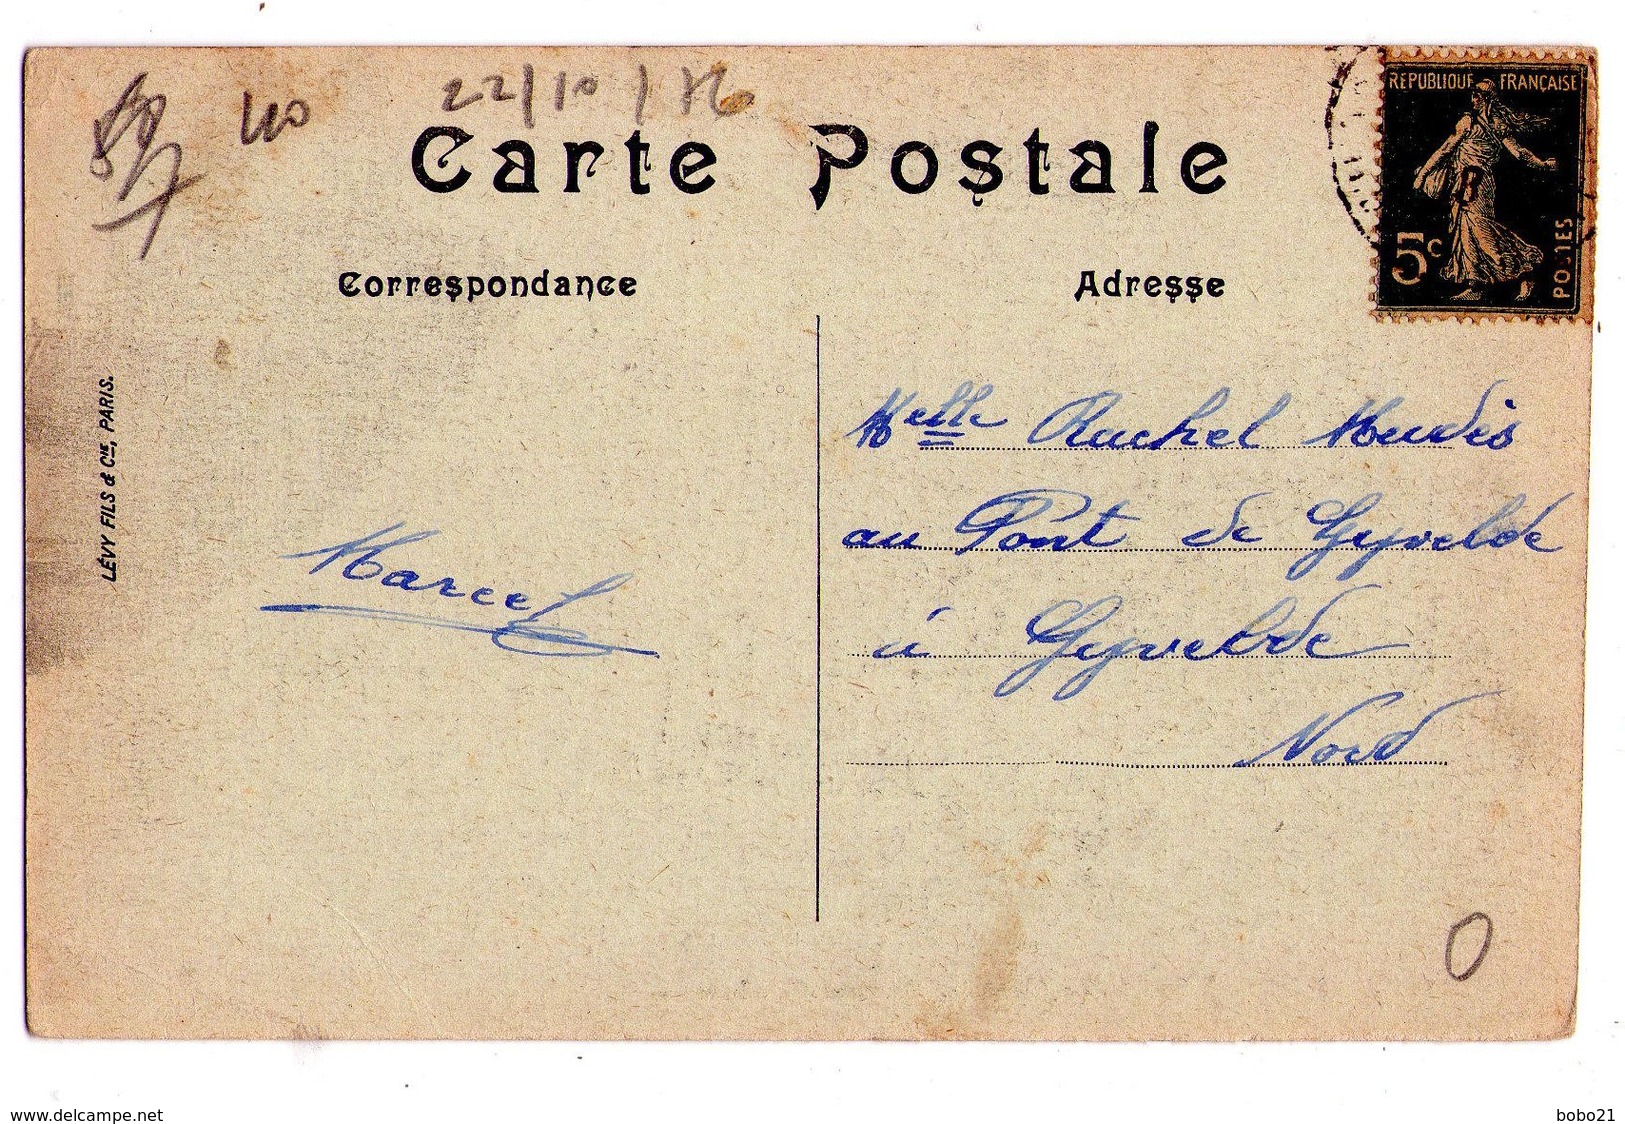 40
22/10/76
Carte Postale
RÉPUBLIQUE FRANÇAISE
5c
POSTES
Correspondance
Adresse
LÉVY FILS & CIE, PARIS.
Marcel
Melle Rachel
au Pont de Ghyvelde
à Ghyvelde
Nord
0
www.delcampe.net
bobo21